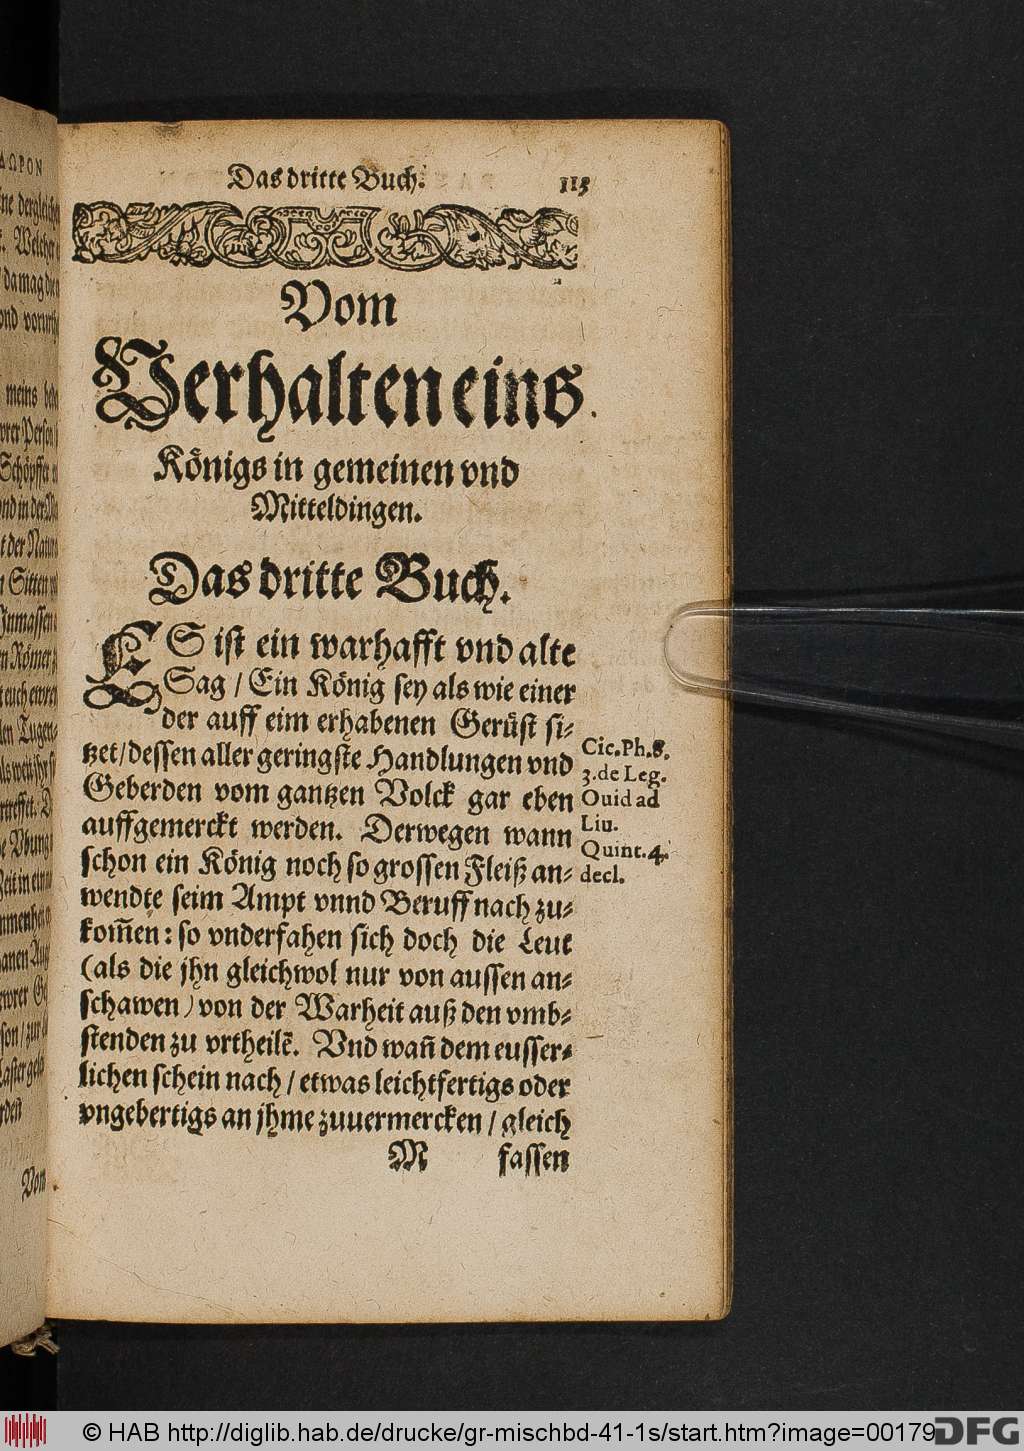 Das dritte Buch. 113
Vom
Verhalten eins
Königs in gemeinen vnd
Mitteldingen.
Das dritte Buch.
ES ist ein warhafft vnd alte
Sag / Ein König sey als wie einer
der auff eim erhabenen Gerüst si-
tzet / dessen aller geringste Handlungen vnd
Geberden vom gantzen Volck gar eben
auffgemerckt werden. Derwegen wann
schon ein König noch so grossen Fleiß an-
wendte seim Ampt vnnd Beruff nach zu-
kom̃en: so vnderfahen sich doch die Leut
(als die jhn gleichwol nur von aussen an-
schawen) von der Warheit auß den vmb-
stenden zu vrtheilẽ. Vnd wañ dem eusser-
lichen schein nach / etwas leichtfertigs oder
vngebertigs an jhme zuuermercken / gleich
M fassen
Cic. Ph. 8.
3. de Leg.
Ouid ad
Liu.
Quint. 4.
decl.
ΔΩΡΟΝ
Vom
© HAB http://diglib.hab.de/drucke/gr-mischbd-41-1s/start.htm?image=00179
DFG